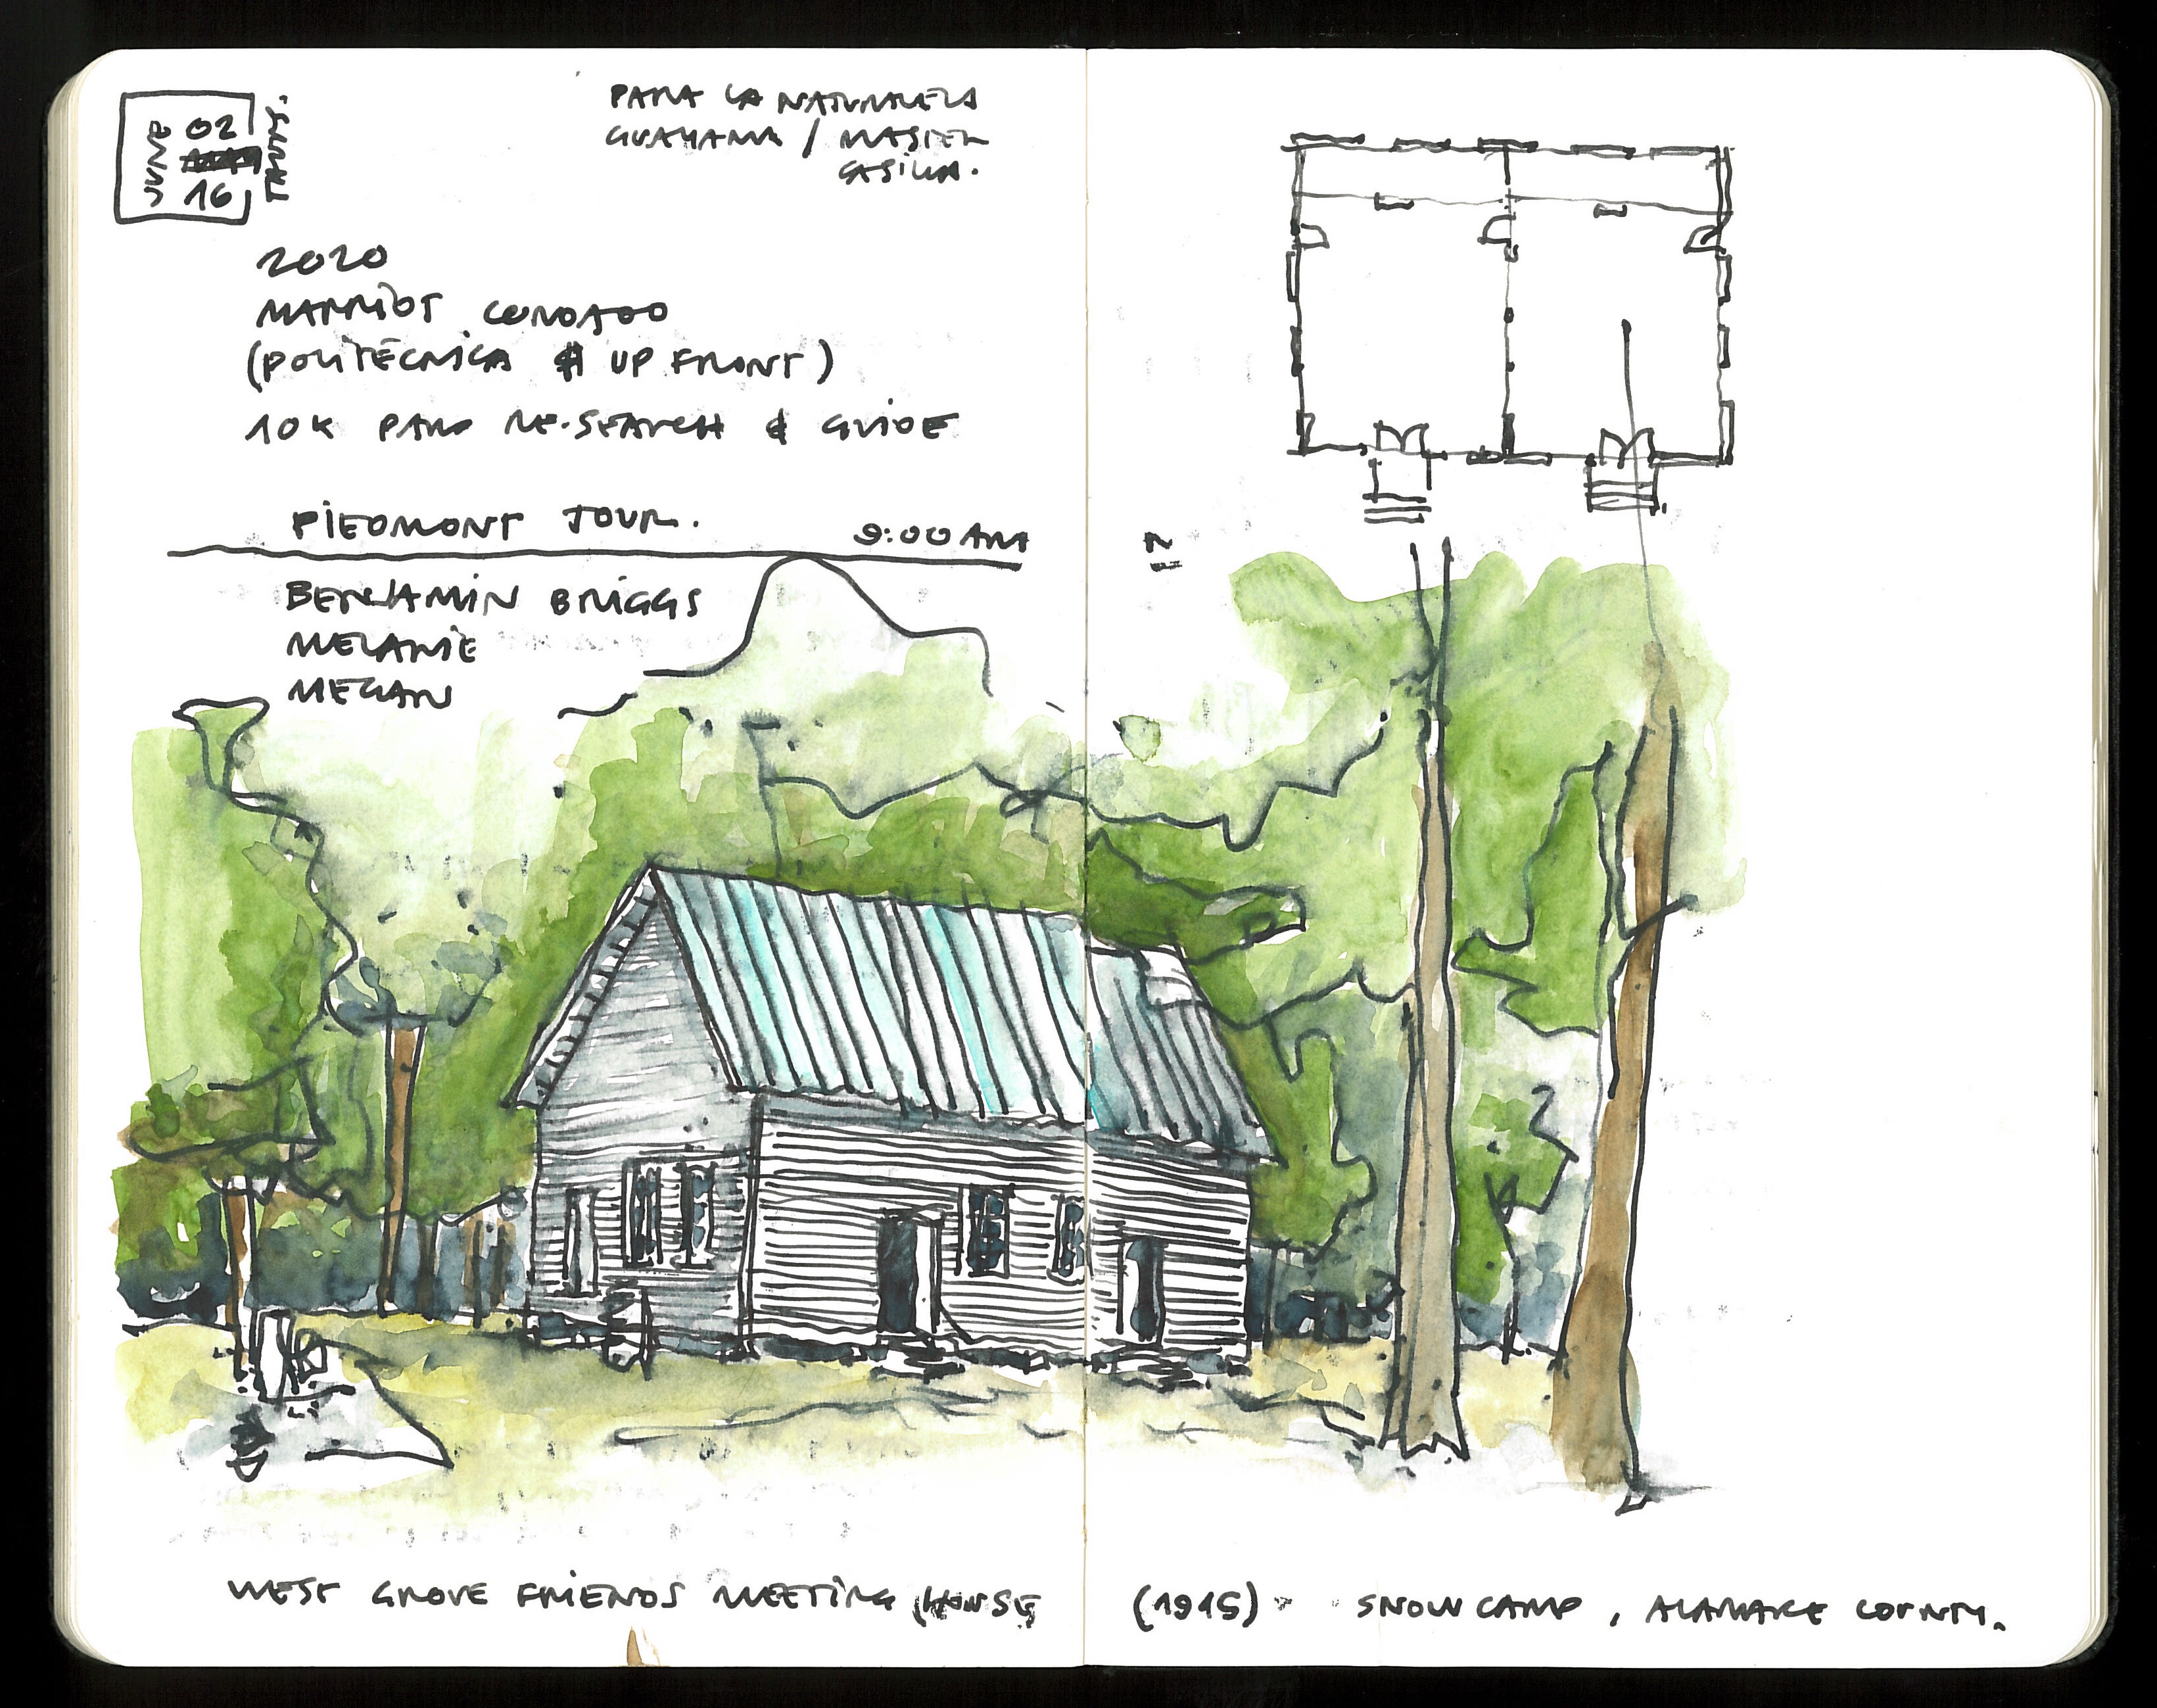 JUNE 02 16 THURS.
PARA LA NATURALEZA
GUAYAMA / MASIEL
CASILLA.
2020
MARRIOT CONDADO
(POLITÉCNICA $ UP FRONT)
10K PARA RE-SEARCH & GUIDE
PIEDMONT TOUR. 9:00 AM
BENJAMIN BRIGGS
MELANIE
MEGAN
N
WEST GROVE FRIENDS MEETING HOUSE (1915) SNOW CAMP, ALAMANCE COUNTY.